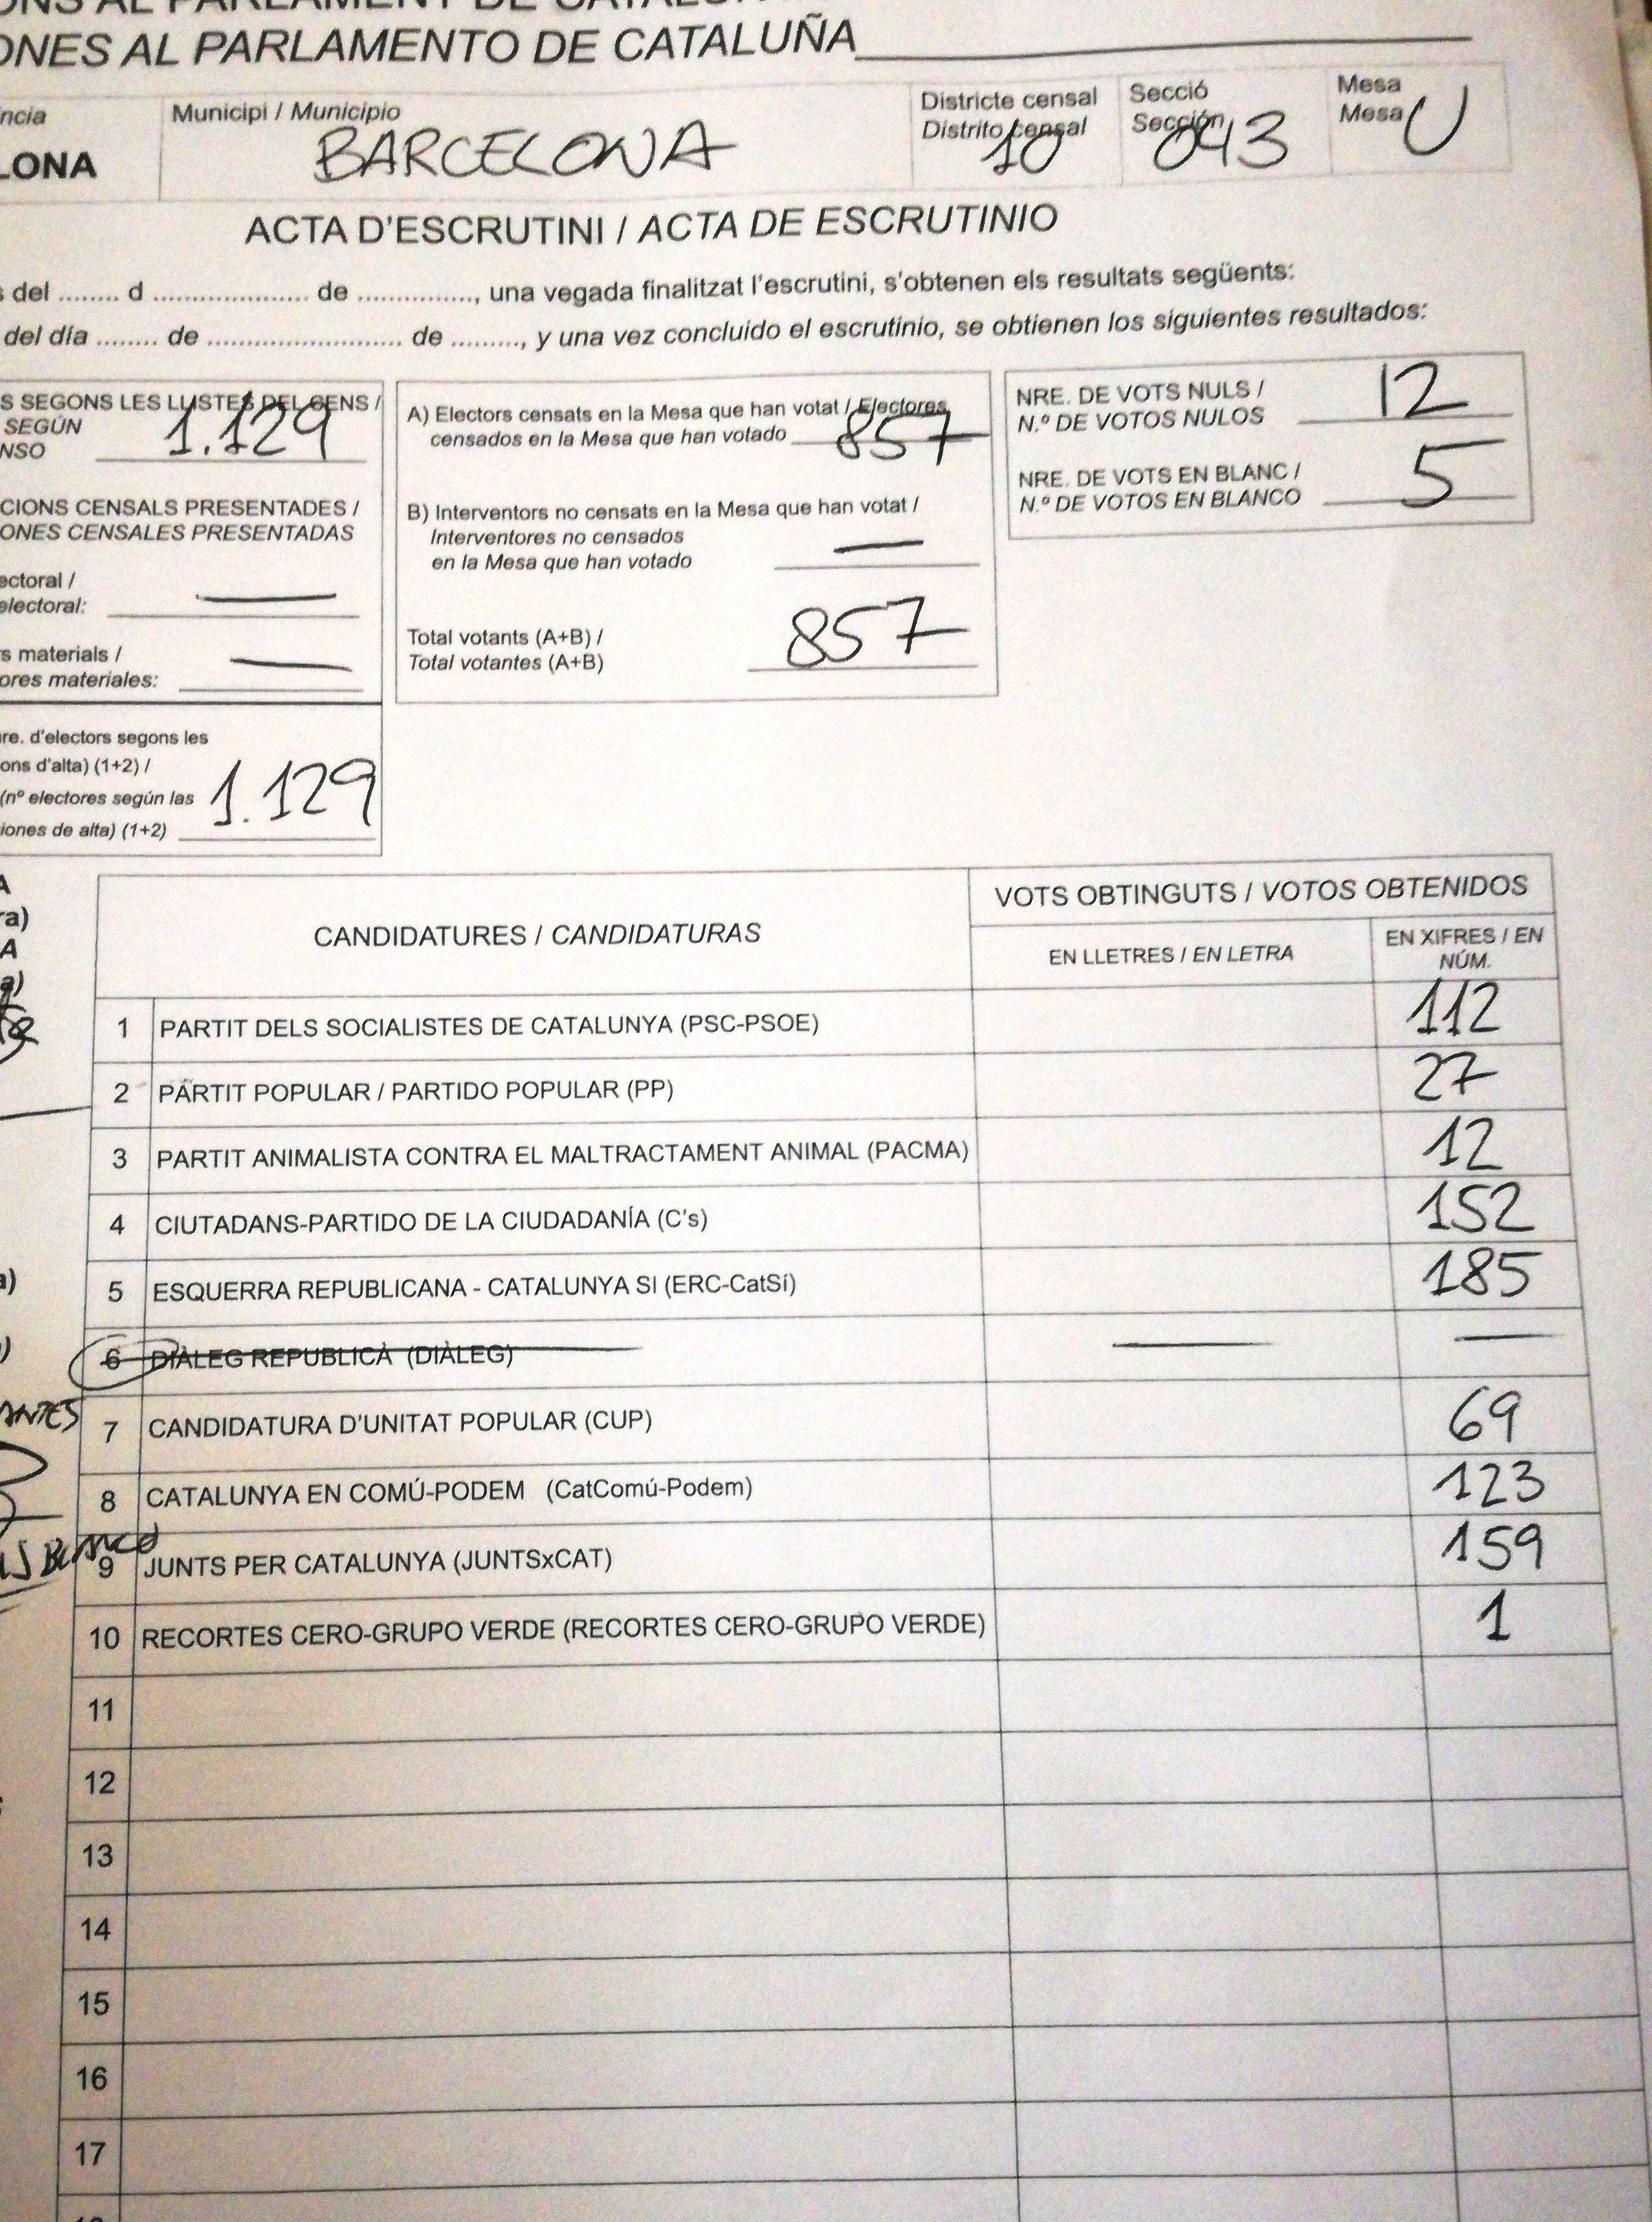 ONES AL PARLAMENTO DE CATALUÑA
ncia
LONA
Municipi / Municipio
BARCELONA
Districte censal
Distrito censal
10
Secció
Sección
043
Mesa
Mesa
U
ACTA D'ESCRUTINI / ACTA DE ESCRUTINIO
s del ........ d .................... de ..............., una vegada finalitzat l'escrutini, s'obtenen els resultats següents:
del día ........ de ......................... de ........., y una vez concluido el escrutinio, se obtienen los siguientes resultados:
S SEGONS LES LLISTES DEL CENS /
SEGÚN
NSO
1.129
CIONS CENSALS PRESENTADES /
ONES CENSALES PRESENTADAS
ectoral /
electoral:
s materials /
ores materiales:
re. d'electors segons les
ons d'alta) (1+2) /
(nº electores según las
iones de alta) (1+2)
1.129
A) Electors censats en la Mesa que han votat / Electores
censados en la Mesa que han votado
857
B) Interventors no censats en la Mesa que han votat /
Interventores no censados
en la Mesa que han votado
—
Total votants (A+B) /
Total votantes (A+B)
857
NRE. DE VOTS NULS /
N.º DE VOTOS NULOS
12
NRE. DE VOTS EN BLANC /
N.º DE VOTOS EN BLANCO
5
A
ra)
A
a)
a)
)
ANTES
CANDIDATURES / CANDIDATURAS
VOTS OBTINGUTS / VOTOS OBTENIDOS
EN LLETRES / EN LETRA
EN XIFRES / EN
NÚM.
1 PARTIT DELS SOCIALISTES DE CATALUNYA (PSC-PSOE) 112
2 PARTIT POPULAR / PARTIDO POPULAR (PP) 27
3 PARTIT ANIMALISTA CONTRA EL MALTRACTAMENT ANIMAL (PACMA) 12
4 CIUTADANS-PARTIDO DE LA CIUDADANÍA (C's) 152
5 ESQUERRA REPUBLICANA - CATALUNYA SI (ERC-CatSí) 185
6 DIÀLEG REPUBLICÀ (DIÀLEG) — —
7 CANDIDATURA D'UNITAT POPULAR (CUP) 69
8 CATALUNYA EN COMÚ-PODEM (CatComú-Podem) 123
9 JUNTS PER CATALUNYA (JUNTSxCAT) 159
10 RECORTES CERO-GRUPO VERDE (RECORTES CERO-GRUPO VERDE) 1
11
12
13
14
15
16
17